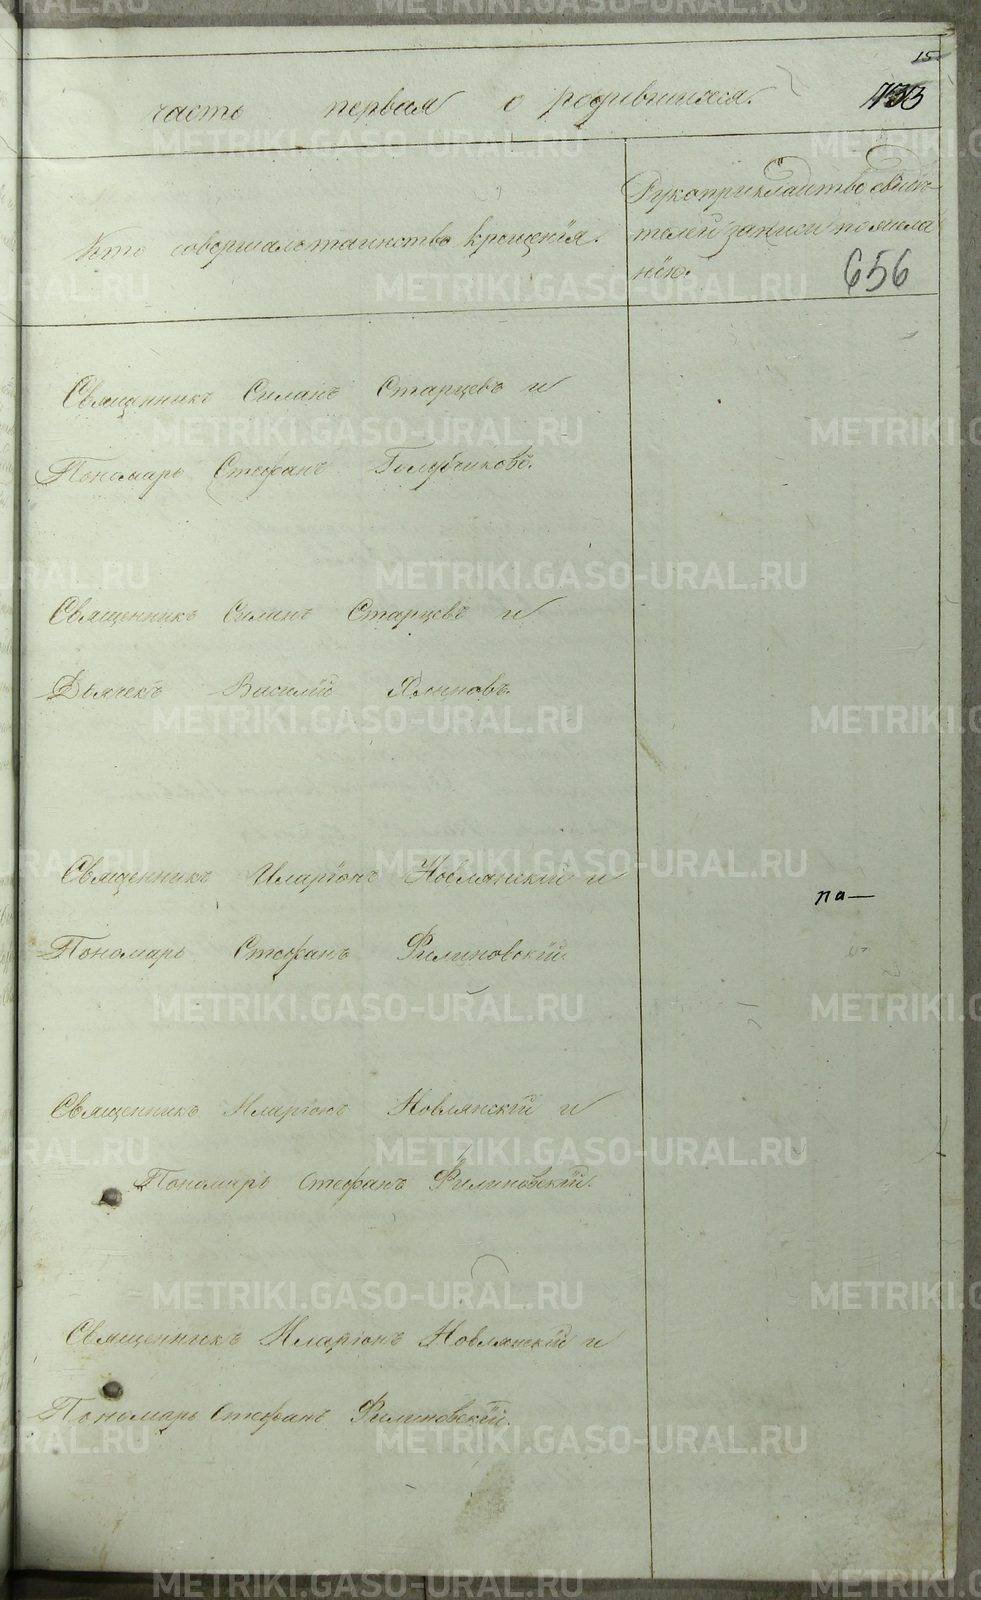 15
часть первая о родившихся.
733
Кто совершалъ таинство крещенія.
Рукоприкладство свидѣ-
телей записи по жела
нію.
656
Священникъ Силанъ Старцевъ и
Пономарь Стефанъ Голубчиковъ.
Священникъ Силанъ Старцевъ и
Дьячекъ Василій
Священникъ Иларіонъ Новлянскій и
па—
Пономарь Стефанъ Филиновскій
Священникъ Иларіонъ Новлянскій и
Пономарь Стефанъ Филиновскій.
Священникъ Иларіонъ Новлянскій и
Пономарь Стефанъ Филиновскій.
METRIKI.GASO-URAL.RU